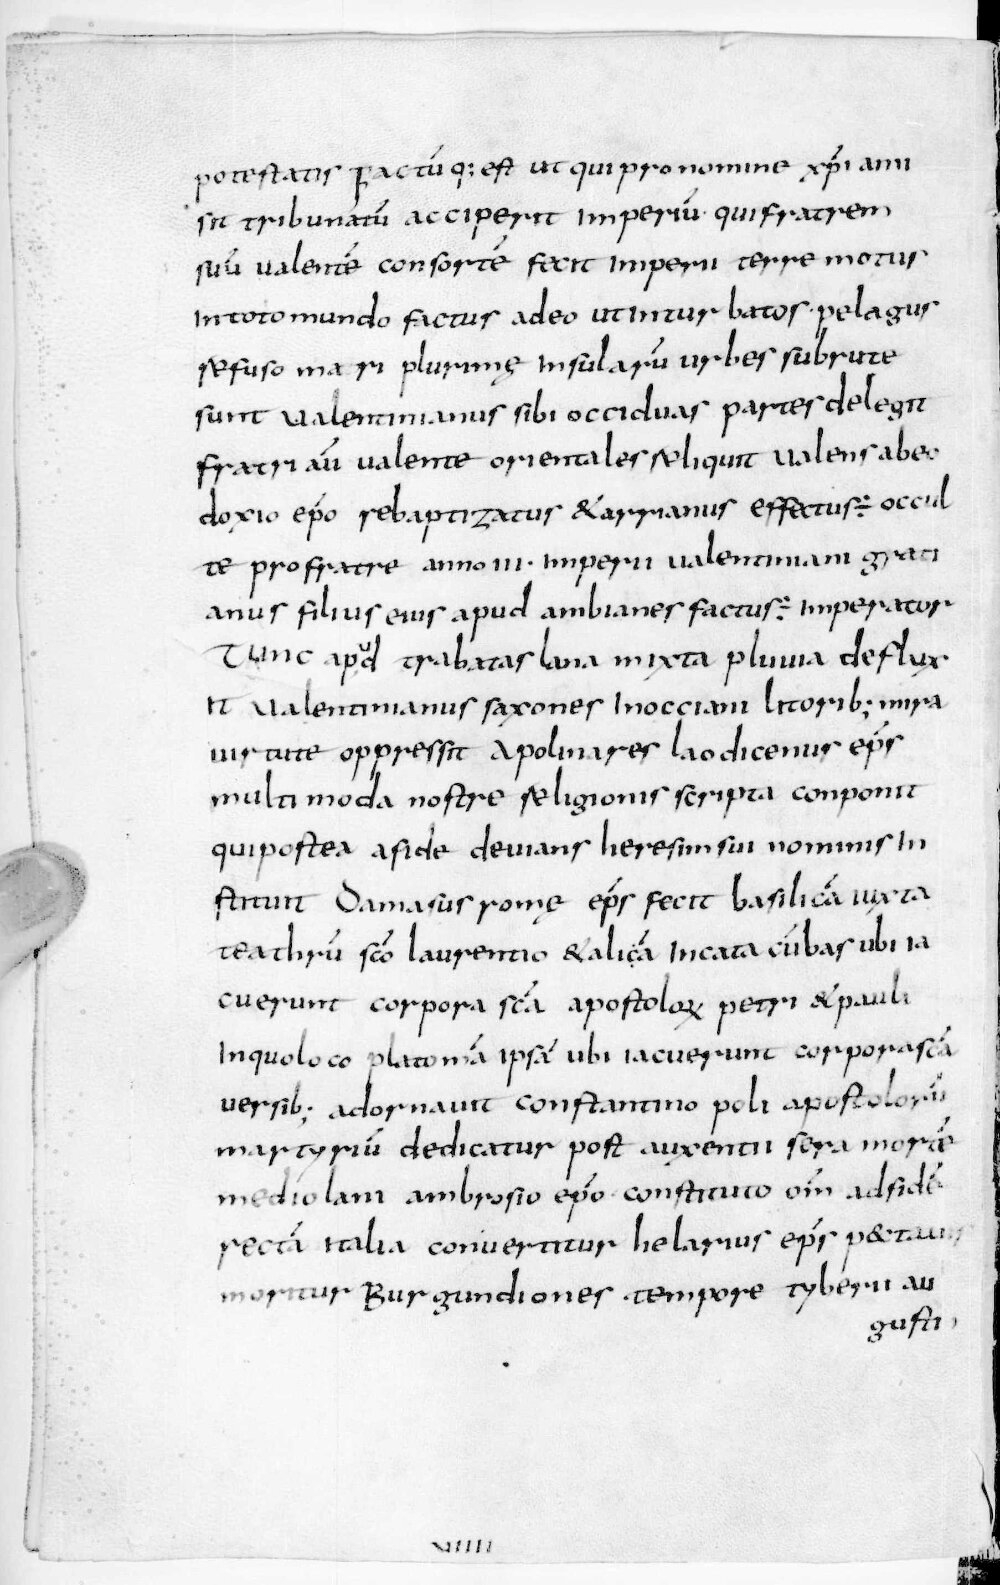 potestatis Factū q; est ut qui pro nomine xp̄i ami
sit tribunatū acciperit imperiū· qui fratrem
suū valentē consortē fecit imperii terre motus
in toto mundo factus adeo ut inturbatos· pelagus
refuso mari plurimę insularū urbes subrute
sunt Valentinianus sibi occiduas partes delegit
fratri aū valente orientales reliquit Valens ab eo
doxio ep̄o rebaptizatus & arrianus effectus÷ occid
te pro fratre anno iii· imperii valentiniani grati
anus filius eius apud ambianes factus÷ imperator
Tunc apud trabatas lana mixta pluvia deflux
it Valentinianus saxones in occiani litorib; mira
virtute oppressit Apolinares laodicenus ep̄s
multimoda nostre religionis scripta conponit
qui postea a fide devians heresim sui nominis in
stituit Damasus romę ep̄s fecit basilicā iuxta
teathrū sc̄o laurentio & alicā in catacūbas ubi ia
cuerunt corpora sc̄a apostoloꝝ petri & pauli
in quo loco platomā ipsā ubi iacuerunt corpora sc̄a
versib; adornavit constantinopoli apostolorū
martyriū dedicatur post auxentii sera mortē
mediolani ambrosio ep̄o· constituto om̄ ad fidē
rectā italia convertitur helarius ep̄s p&tavis
moritur Burgundiones tempore tyberii au
gusti
viiii